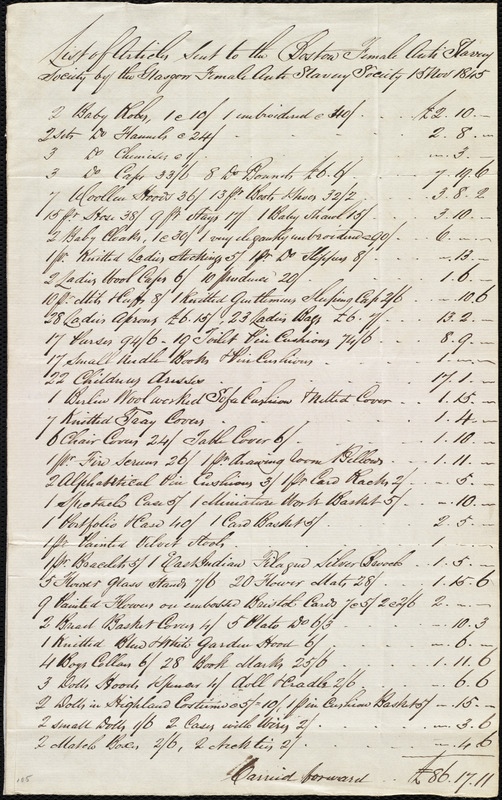 List of Articles Sent to the Boston Female Anti Slavery
Society by the Glasgow Female Anti Slavery Society 15 Nov 1845
2 Baby Robes, 1 @ 10/ 1 embroidered @ 40/ . £2. 10. -
2 Sets Do Flannels @ 24/ . . . 2. 8. -
3 Do Chemises @ 1/ . . . -. 3. -
3 Do Caps 33/6 8 Do Bonnets £6. 6/ . . 7. 19. 6
7 Woollen Hoods 36/ 13 pr Boots & Shoes 32/2 . . 3. 8. 2
15 pr Hose 38/ 9 pr Stays 17/ 1 Baby Shawl 15/ . . 3. 10. -
2 Baby Cloaks, 1 @ 30/ 1 very elegantly embroidered @ 90/ . 6. -. -
1 pr Knitted Ladies Stockings 5/ 1 pr Do Slippers 8/ . -. 13. -
2 Ladies Wool Caps 6/ 10 20/ . . 1. 6. -
10 pr Mits & Cuffs 8/ 1 Knitted Gentlemans Sleeping Cap 2/6 . -. 10. 6
28 Ladies Aprons £6. 15/ 23 Ladies Bags £6. 7/ . 13. 2. -
17 Purses 94/6 - 19 Toilet Pin Cushions 74/6 . 8. 9. -
17 Small Needle Books & Pin Cushions . . 1. -. -
22 Childrens dresses . . . 17. 1. -
1 Berlin Wool worked Sofa Cushion & Netted Cover . 1. 15. -
7 Knitted Tray Covers . . . 1. 4. -
6 Chair Covers 24/ Table Cover 6/ . . 1. 10. -
1 pr Fire Screens 26/ 1 pr drawing room Bellows . . 1. 11. -
2 Alphabetical Pin Cushions 3/ 1 pr Card Racks 2/ . -. 5. -
1 Spectacle Case 5/ 1 Miniature Work Basket 5/ . -. 10. -
1 Portfolio & Case 40/ 1 Card Basket 5/ . 2. 5. -
1 pr Painted Velvet Stools . . 1.
1 pr Bracelets 5/ 1 East Indian Filagree Silver Brooch . 1. 5. -
5 Flower Glass Stands 7/6 20 Flower Mats 28/ . . 1. 15. 6
9 Painted Flowers on embossed Bristol Cards 7 @ 5/ 2 @ 2/6 2. -. -
2 Bread Basket Covers 4/ 5 Plate Do 6/3 . . -. 10. 3
1 Knitted Blue & White Garden Hood 6/ . . -. 6. -
4 Boys Collars 6/ 28 Book Marks 25/6 . . 1. 11. 6
3 Dolls Hoods & Spencer 4/ doll & Cradle 2/6 . . -. 6. 6
2 Dolls in Highland Costume @ 5/ = 10/, 1 Pin Cushion Basket 5/ -. 15. -
2 Small Dolls 1/6 2 Cases with Wires 2/ . . -. 3. 6
2 Match Boxes 2/6, 2 Neck ties 2/ . . -. 4. 6
Carried forward . . £86. 17. 11